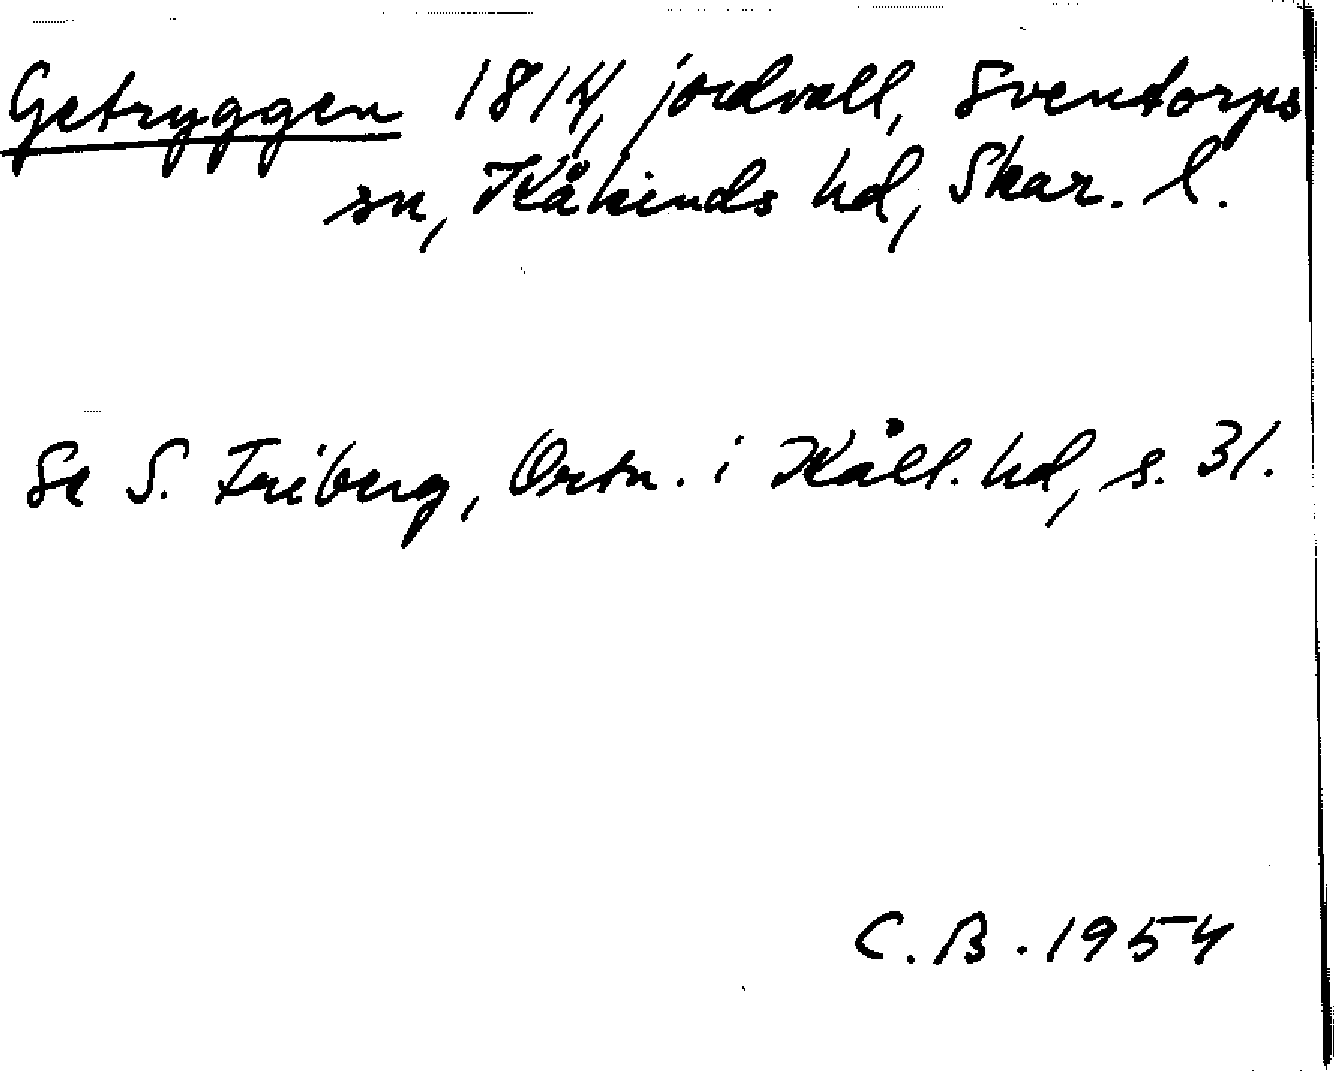 Getryggen 1814, jordvall, Sventorps
sn, Kåkinds hd, Skar. l.
Se S. Friberg, Ortn. i Kåll. hd, s. 31.
C. B. 1954